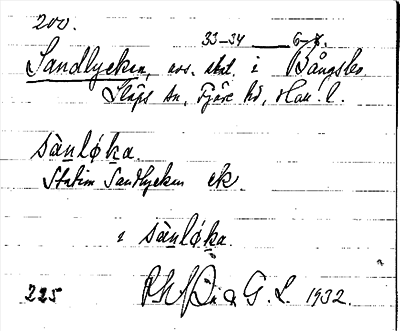 200.
33–34 6–8.
Sandlyckan, avs. i Bångsbo
Släps sn, Fjäre hd, Hall. l.
sànlø̀ka.
Station Sandlyckan ek
i sànlø̀ka.
225 G. L. 1932.